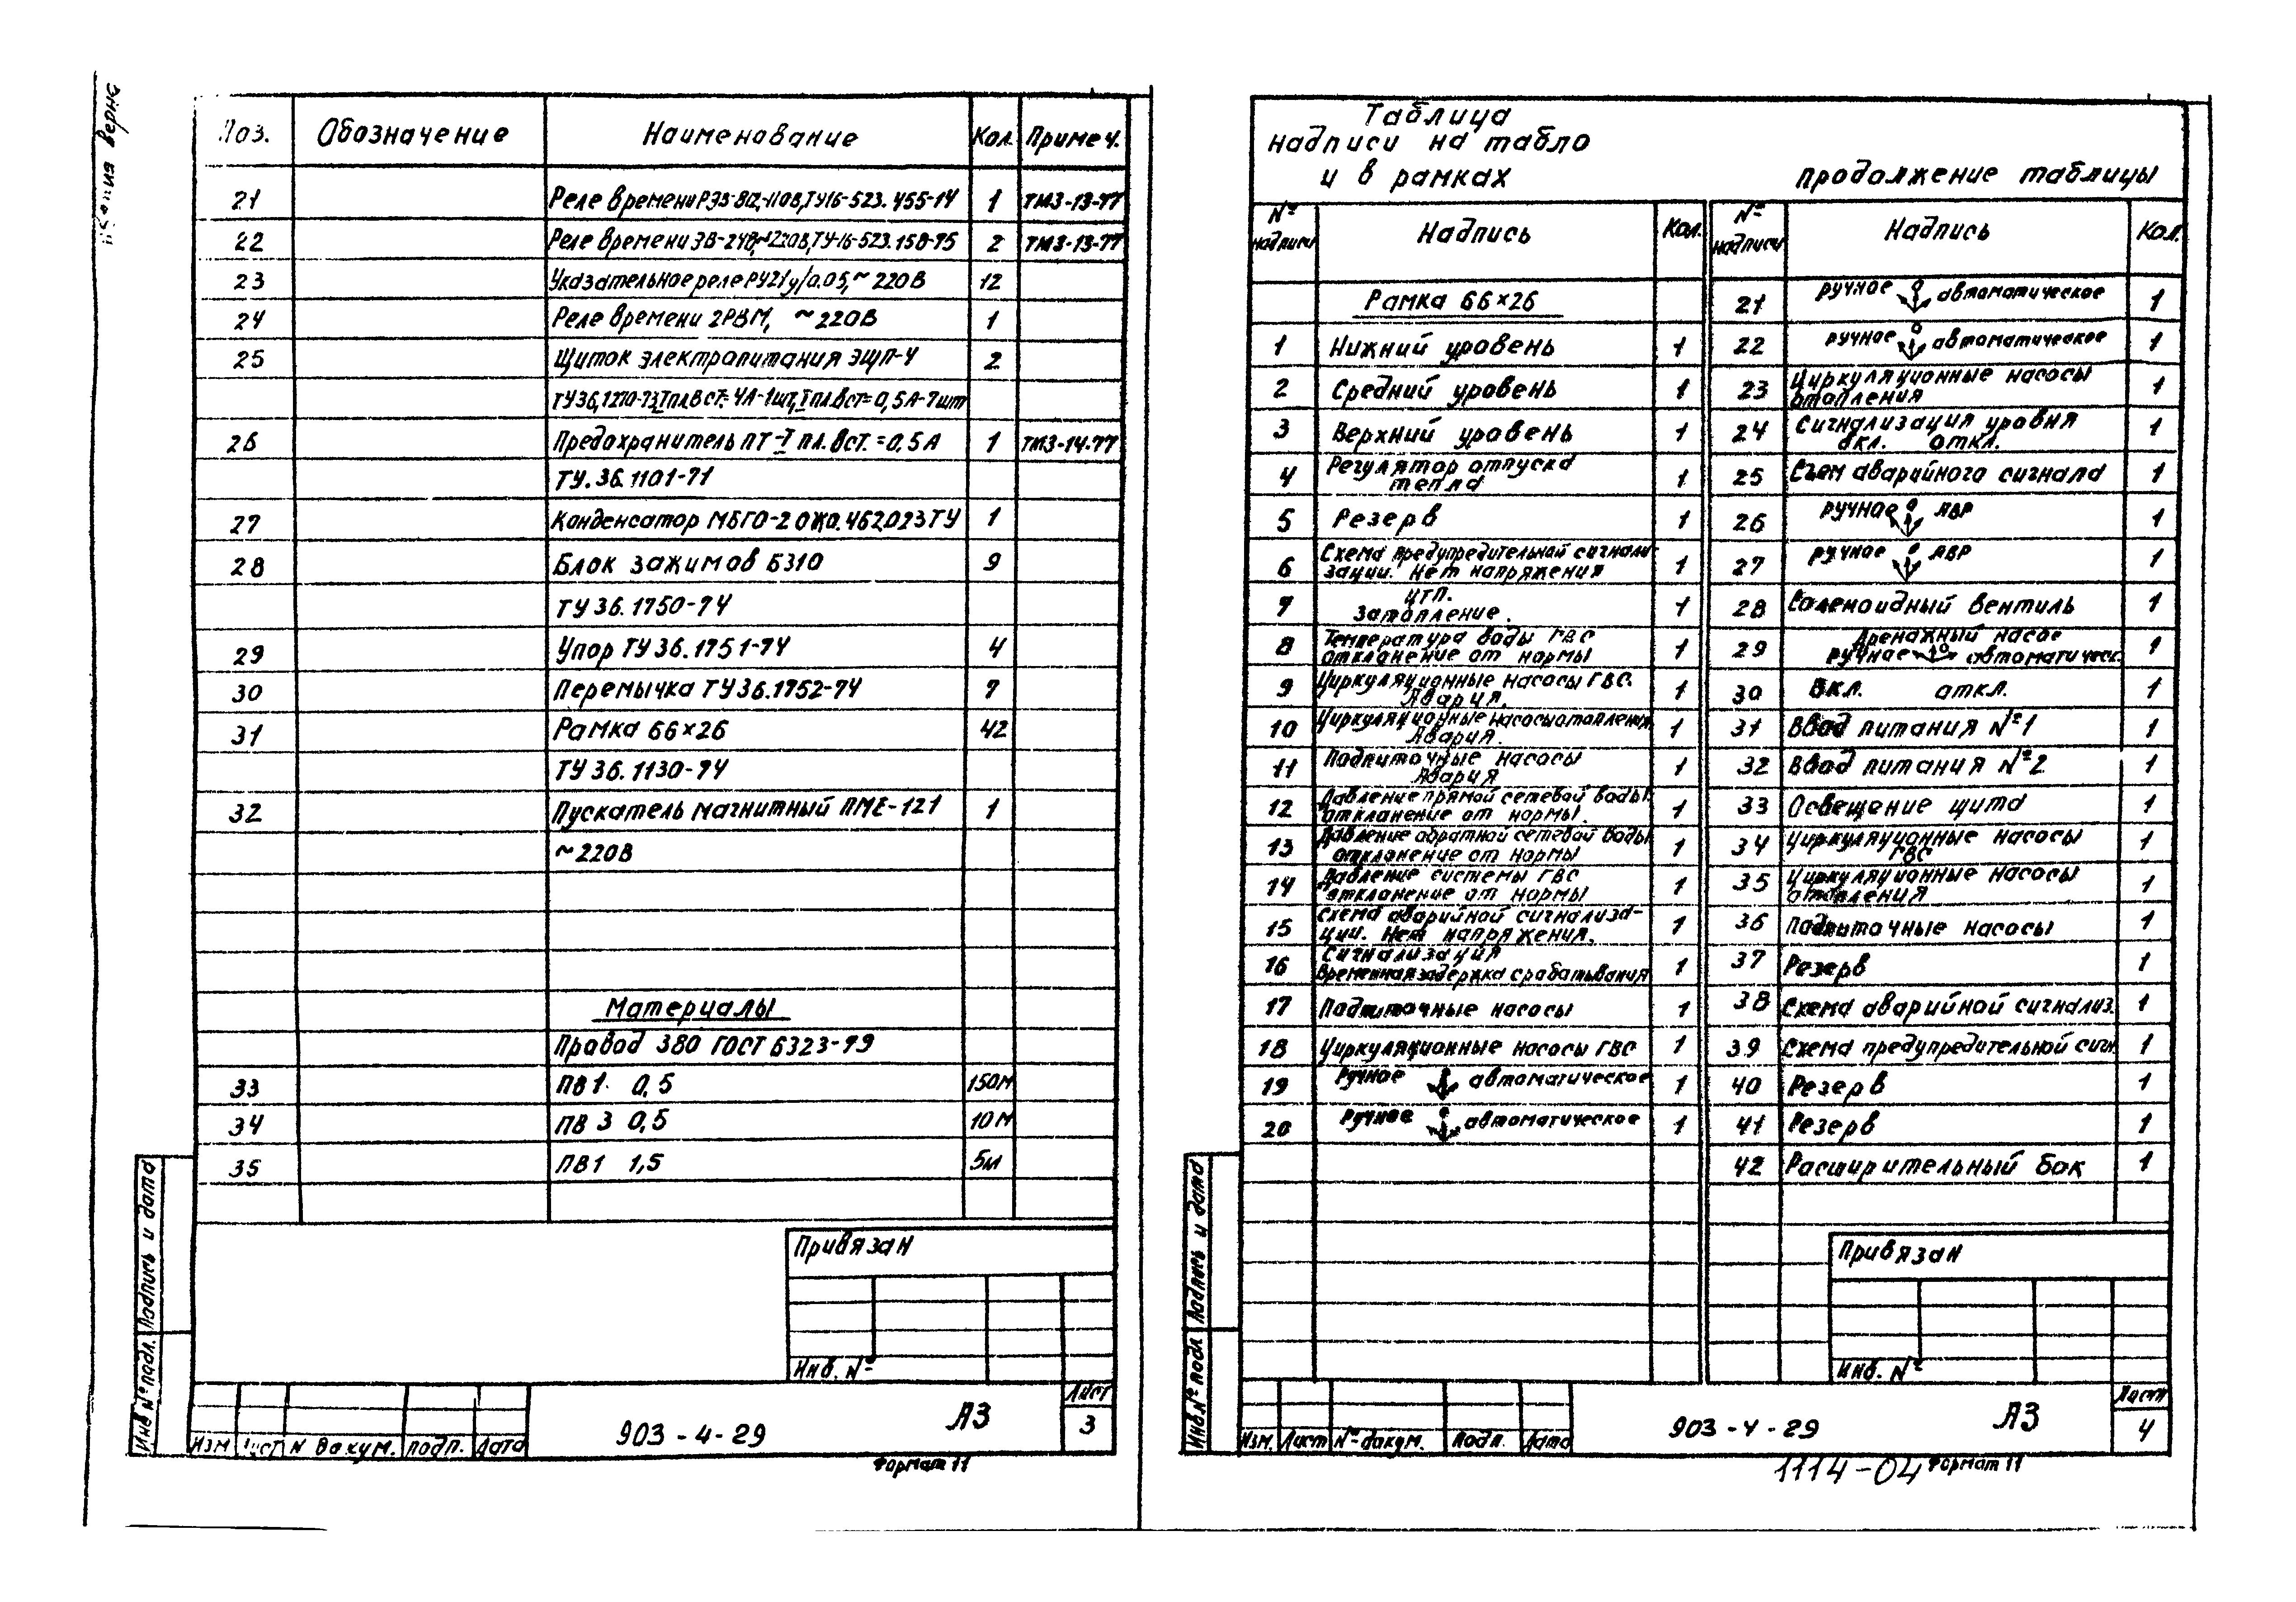 Поз. Обозначение Наименование Кол. Примеч.
21 Реле времени РЭВ-812,-110В,ТУ16-523.455-74 1 ТМ3-13-77
22 Реле времени ЭВ-248,~220В,ТУ-16-523.158-75 2 ТМ3-13-77
23 Указательное реле РУ21у/0.05,~220В 12
24 Реле времени 2РВМ, ~220В 1
25 Щиток электропитания ЭЩП-4 2
ТУ36,1270-73,Iпл.вст.=4А-1шт,Iпл.вст=0,5А-7шт
26 Предохранитель ПТ-I пл.вст.=0,5А 1 ТМ3-14-77
ТУ.36.1101-71
27 Конденсатор МБГО-2 ОЖО.462.023ТУ 1
28 Блок зажимов Б310 9
ТУ36.1750-74
29 Упор ТУ36.1751-74 4
30 Перемычка ТУ36.1752-74 7
31 Рамка 66×26 42
ТУ36.1130-74
32 Пускатель магнитный ПМЕ-121 1
~220В
Материалы
Провод 380 ГОСТ 6323-79
33 ПВ1 0,5 150м
34 ПВ3 0,5 10м
35 ПВ1 1,5 5м
Привязан
Инв. №
Инв № подл. Подпись и дата
Изм Лист N докум. подп. Дата
903-4-29 А3 Лист 3
Формат 11
Таблица
надписи на табло
и в рамках
№ надписи Надпись Кол.
Рамка 66×26
1 Нижний уровень 1
2 Средний уровень 1
3 Верхний уровень 1
4 Регулятор отпуска
тепла 1
5 Резерв 1
6 Схема предупредительной сигнали-
зации. Нет напряжения 1
7 ЦТП.
Затопление. 1
8 Температура воды ГВС
отклонение от нормы 1
9 Циркуляционные насосы ГВС.
Авария. 1
10 Циркуляционные насосы отопления
Авария. 1
11 Подпиточные насосы
Авария 1
12 Давление прямой сетевой воды.
отклонение от нормы. 1
13 Давление обратной сетевой воды
отклонение от нормы 1
14 Давление системы ГВС
отклонение от нормы 1
15 Схема аварийной сигнализа-
ции. Нет напряжения. 1
16 Сигнализация
временная задержка срабатывания 1
17 Подпиточные насосы 1
18 Циркуляционные насосы ГВС 1
19 Ручное 0 автоматическое 1
20 Ручное 0 автоматическое 1
продолжение таблицы
№ надписи Надпись Кол.
21 ручное 0 автоматическое 1
22 ручное 0 автоматическое 1
23 Циркуляционные насосы
отопления 1
24 Сигнализация уровня
вкл. откл. 1
25 Съем аварийного сигнала 1
26 ручное 0 АВР 1
27 ручное 0 АВР 1
28 Соленоидный вентиль 1
29 Дренажный насос
ручное 0 автоматическ. 1
30 Вкл. откл. 1
31 Ввод питания №1 1
32 Ввод питания №2 1
33 Освещение щита 1
34 Циркуляционные насосы
ГВС 1
35 Циркуляционные насосы
отопления 1
36 Подпиточные насосы 1
37 Резерв 1
38 Схема аварийной сигнализ. 1
39 Схема предупредительной сигн. 1
40 Резерв 1
41 Резерв 1
42 Расширительный бак 1
Привязан
Инв. №
Инв.№ подл Подпись и дата
Изм. Лист № докум. Подп. Дата
903-4-29 А3 Лист 4
1114-04 Формат 11